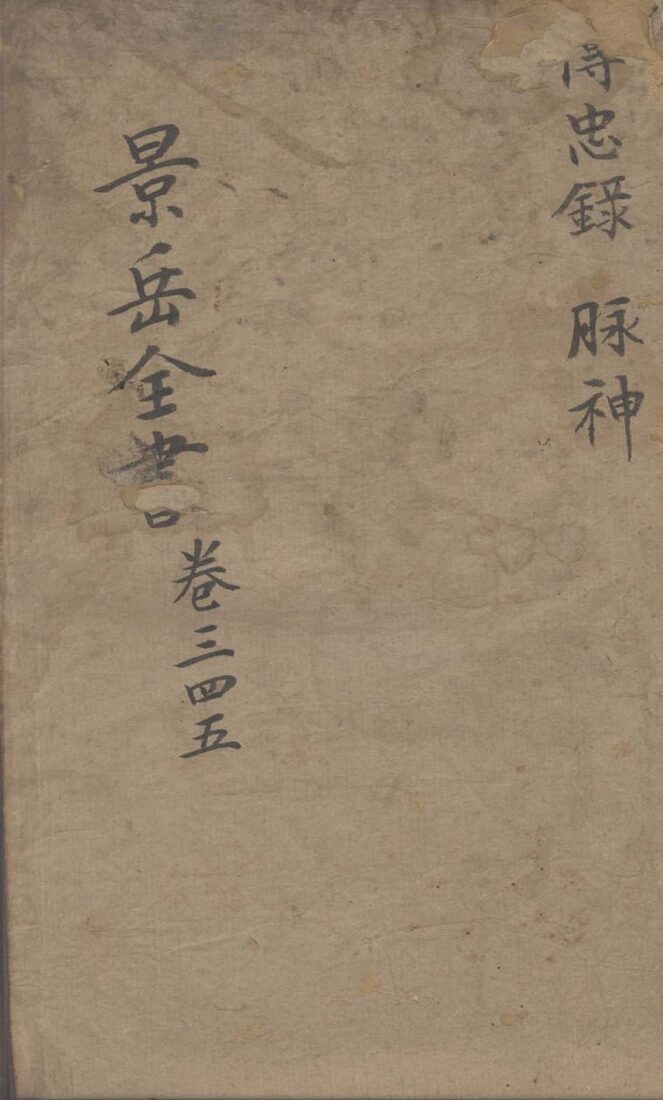 傳忠錄 脉神
景岳全書
卷三四五